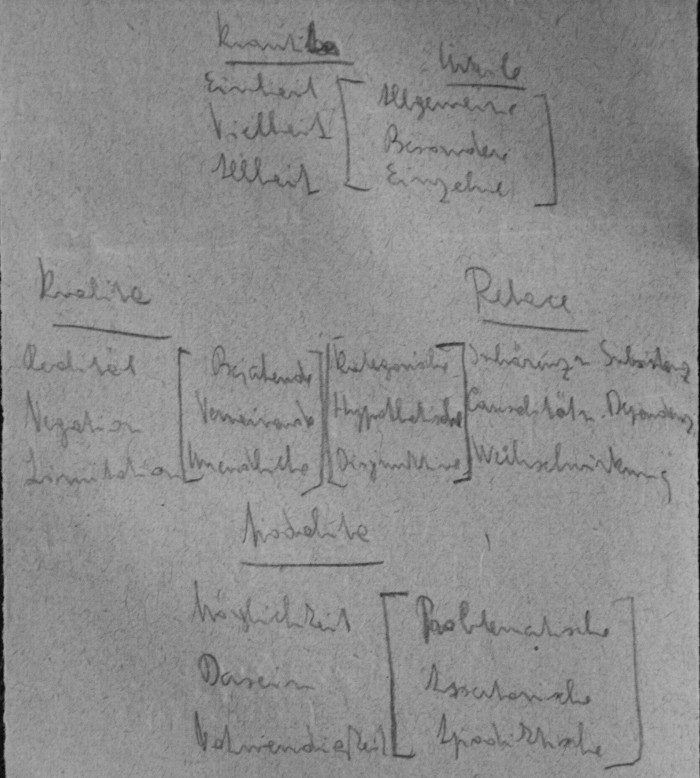 Kvantita
Urteile
Einheit [ Allgemeine ]
Vielheit Besondere
Allheit Einzelne
Kvalita
Relace
Realität [ Bejahende ] [ Kategorische ] Inhärenz u. Subsistenz
Negation Verneinende Hypothetische Causalität u. Dependenz
Limitation Unendliche Disjunktive Wechselwirkung
Modalita
Möglichkeit [ Problematische ]
Dasein Assertorische
Notwendigkeit Apodiktische